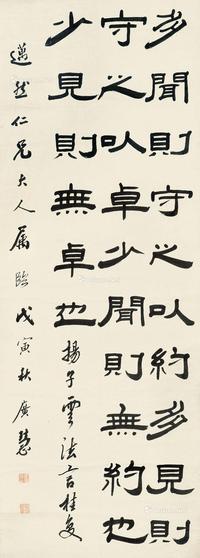 多聞則守之以約多見則
守之以卓少聞則無約也
少見則無卓也 揚子雲法言桂复
邁然仁兄大人属臨戊寅秋